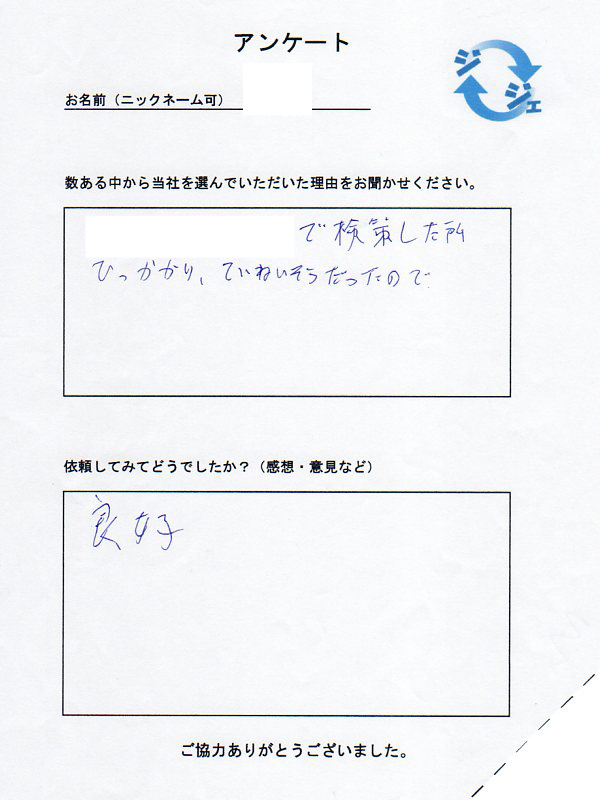 アンケート
ジジェ
お名前（ニックネーム可）
数ある中から当社を選んでいただいた理由をお聞かせください。
で検策した所
ひっかかり、ていねいそうだったので
依頼してみてどうでしたか？（感想・意見など）
良好
ご協力ありがとうございました。